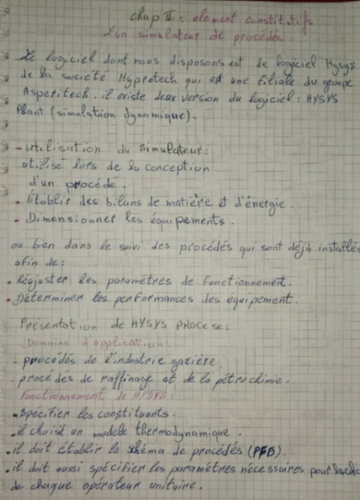 chap II : element constitutifs
d'un simulateur de procédés.
Le logiciel dont nous disposons est le logiciel Hysys
de la société Hyprotech qui est une filiale du groupe
Aspentech. il existe deux version du logiciel : HYSYS
Plant (simulation dynamique).
- utilisation du simulateur :
utilisé lors de la conception
d'un procédé.
• Établir des bilans de matière et d'énergie.
• Dimensionner les équipements.
ou bien dans le suivi des procédés qui sont déjà installés
afin de :
• Réajuster les paramètres de fonctionnement.
• Déterminer les performances des équipement.
Présentation de HYSYS PROCESS :
Domaine d'application :
• procédés de l'industrie gazière
procédés de raffinage et de la pétrochimie.
fonctionnement de HYSYS :
• Spécifier les constituants.
• il choisit un modèle thermodynamique.
• il doit établir le schéma de procédés (PFD)
• il doit aussi spécifier les paramètres nécessaires pour
de chaque opérateur unitaire.